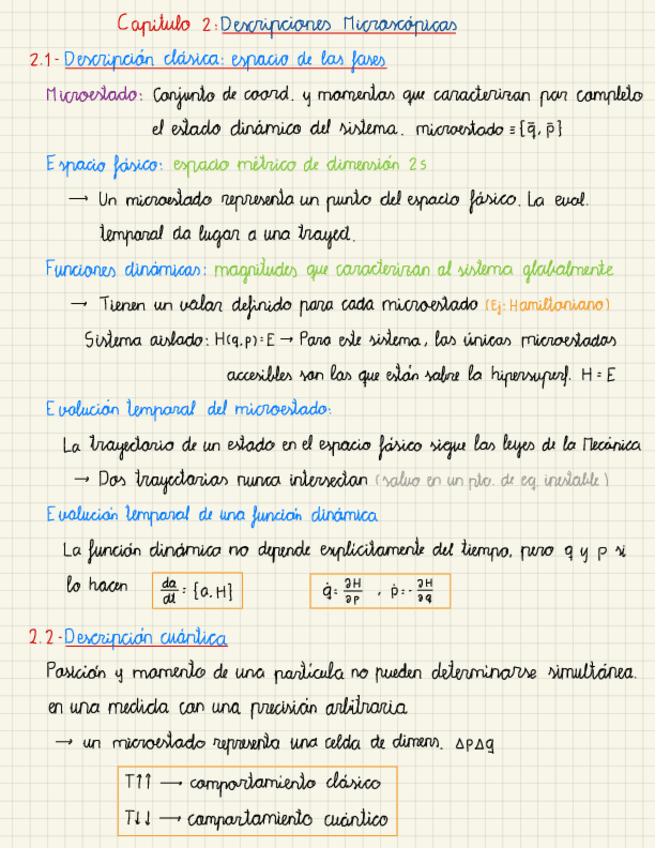 Capitulo 2: Descripciones Microscópicas
2.1- Descripción clásica: espacio de las fases
Microestado: Conjunto de coord. y momentos que caracterizan por completo
el estado dinámico del sistema. microestado ≡ {q̄, p̄}
Espacio fásico: espacio métrico de dimensión 2s
→ Un microestado representa un punto del espacio fásico. La evol.
temporal da lugar a una trayect.
Funciones dinámicas: magnitudes que caracterizan al sistema globalmente
→ Tienen un valor definido para cada microestado (Ej: Hamiltoniano)
Sistema aislado: H(q,p)=E → Para este sistema, los únicos microestados
accesibles son los que están sobre la hipersuperf. H = E
Evolución temporal del microestado:
La trayectoria de un estado en el espacio fásico sigue las leyes de la Mecánica
→ Dos trayectorias nunca intersectan (salvo en un pto. de eq. inestable)
Evolución temporal de una función dinámica
La función dinámica no depende explícitamente del tiempo, pero q y p si
lo hacen da/dt = {a,H} q̇ = ∂H/∂p , ṗ = -∂H/∂q
2.2-Descripción cuántica
Posición y momento de una partícula no pueden determinarse simultánea.
en una medida con una precisión arbitraria
→ un microestado representa una celda de dimens. ΔpΔq
T↑↑ → comportamiento clásico
T↓↓ → comportamiento cuántico